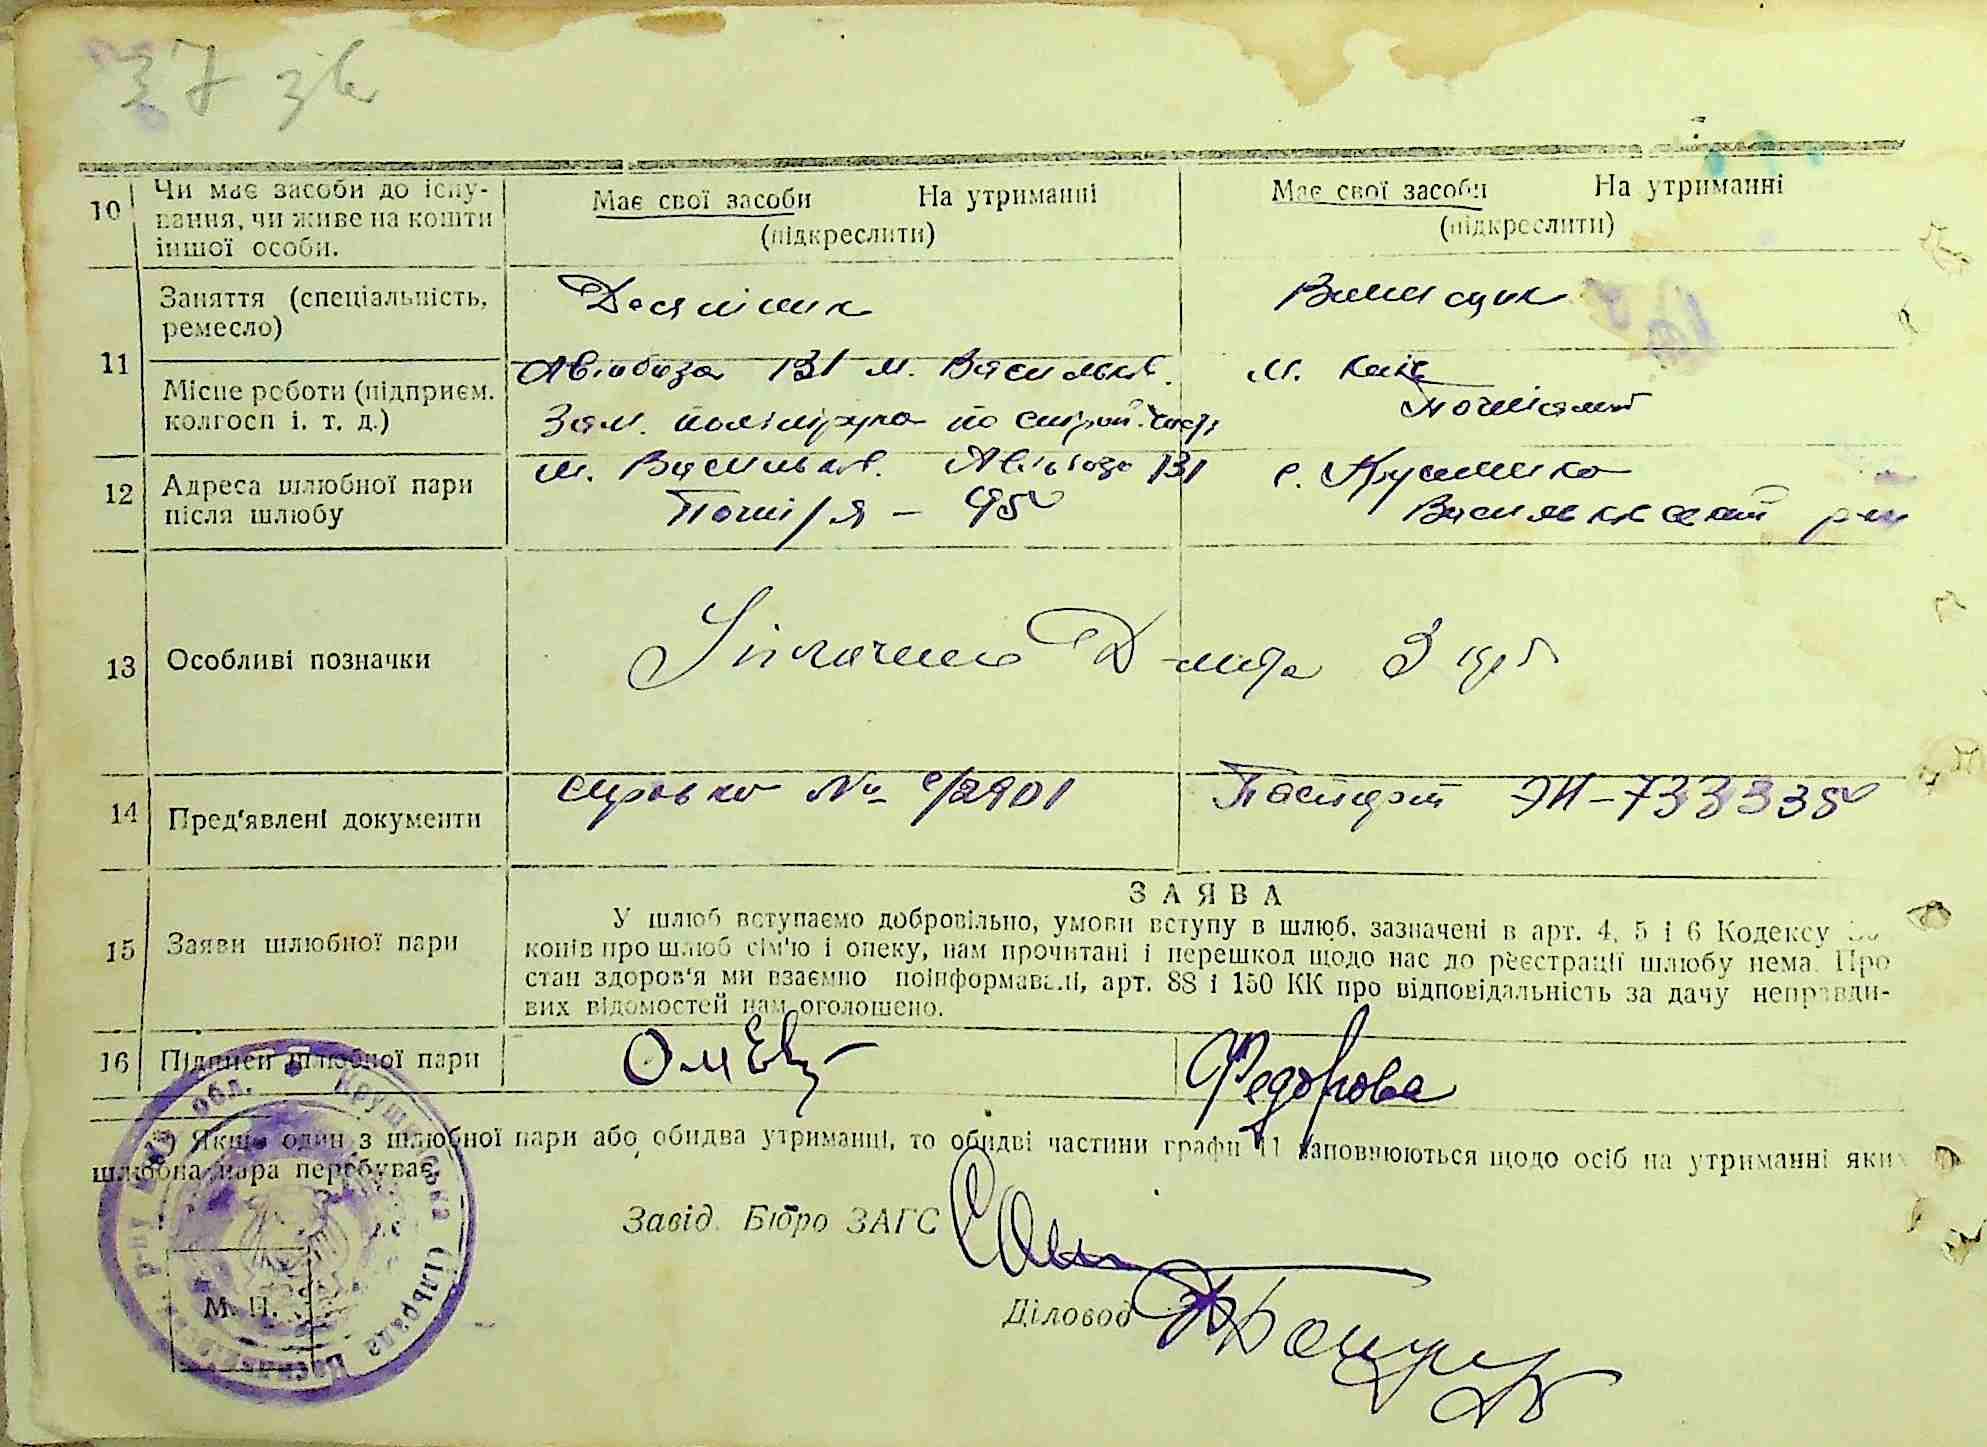 37 зв
10 Чи має засоби до існу-
вання, чи живе на кошти
іншої особи.
Має свої засоби На утриманні
(підкреслити)
Має свої засоби На утриманні
(підкреслити)
11 Заняття (спеціальність,
ремесло)
Місце роботи (підприєм.
колгосп і. т. д.)
Авіабаза 131 м. Васильків.
Зам. по строй. части
м. Київ
Почтамт
12 Адреса шлюбної пари
після шлюбу
м. Васильків. Авіабаза 131
с. Крушинка
Васильківський р-н
13 Особливі позначки
3 крб
14 Пред'явлені документи
справка № 2901
Паспорт
15 Заяви шлюбної пари
ЗАЯВА
У шлюб вступаємо добровільно, умови вступу в шлюб, зазначені в арт. 4, 5 і 6 Кодексу
конів про шлюб сім'ю і опеку, нам прочитані і перешкод щодо нас до реєстрації шлюбу нема. Про
стан здоров'я ми взаємно поінформавалі, арт. 88 і 150 КК про відповідальність за дачу неправди-
вих відомостей нам оголошено.
16 Підписи шлюбної пари
Федорова
*) Якщо один з шлюбної пари або обидва утриманці, то обидві частини графи 11 заповнюються щодо осіб на утриманні яких
шлюбна пара перебуває.
Завід. Бюро ЗАГС
Діловод
М. П.
Крушинська сільрада